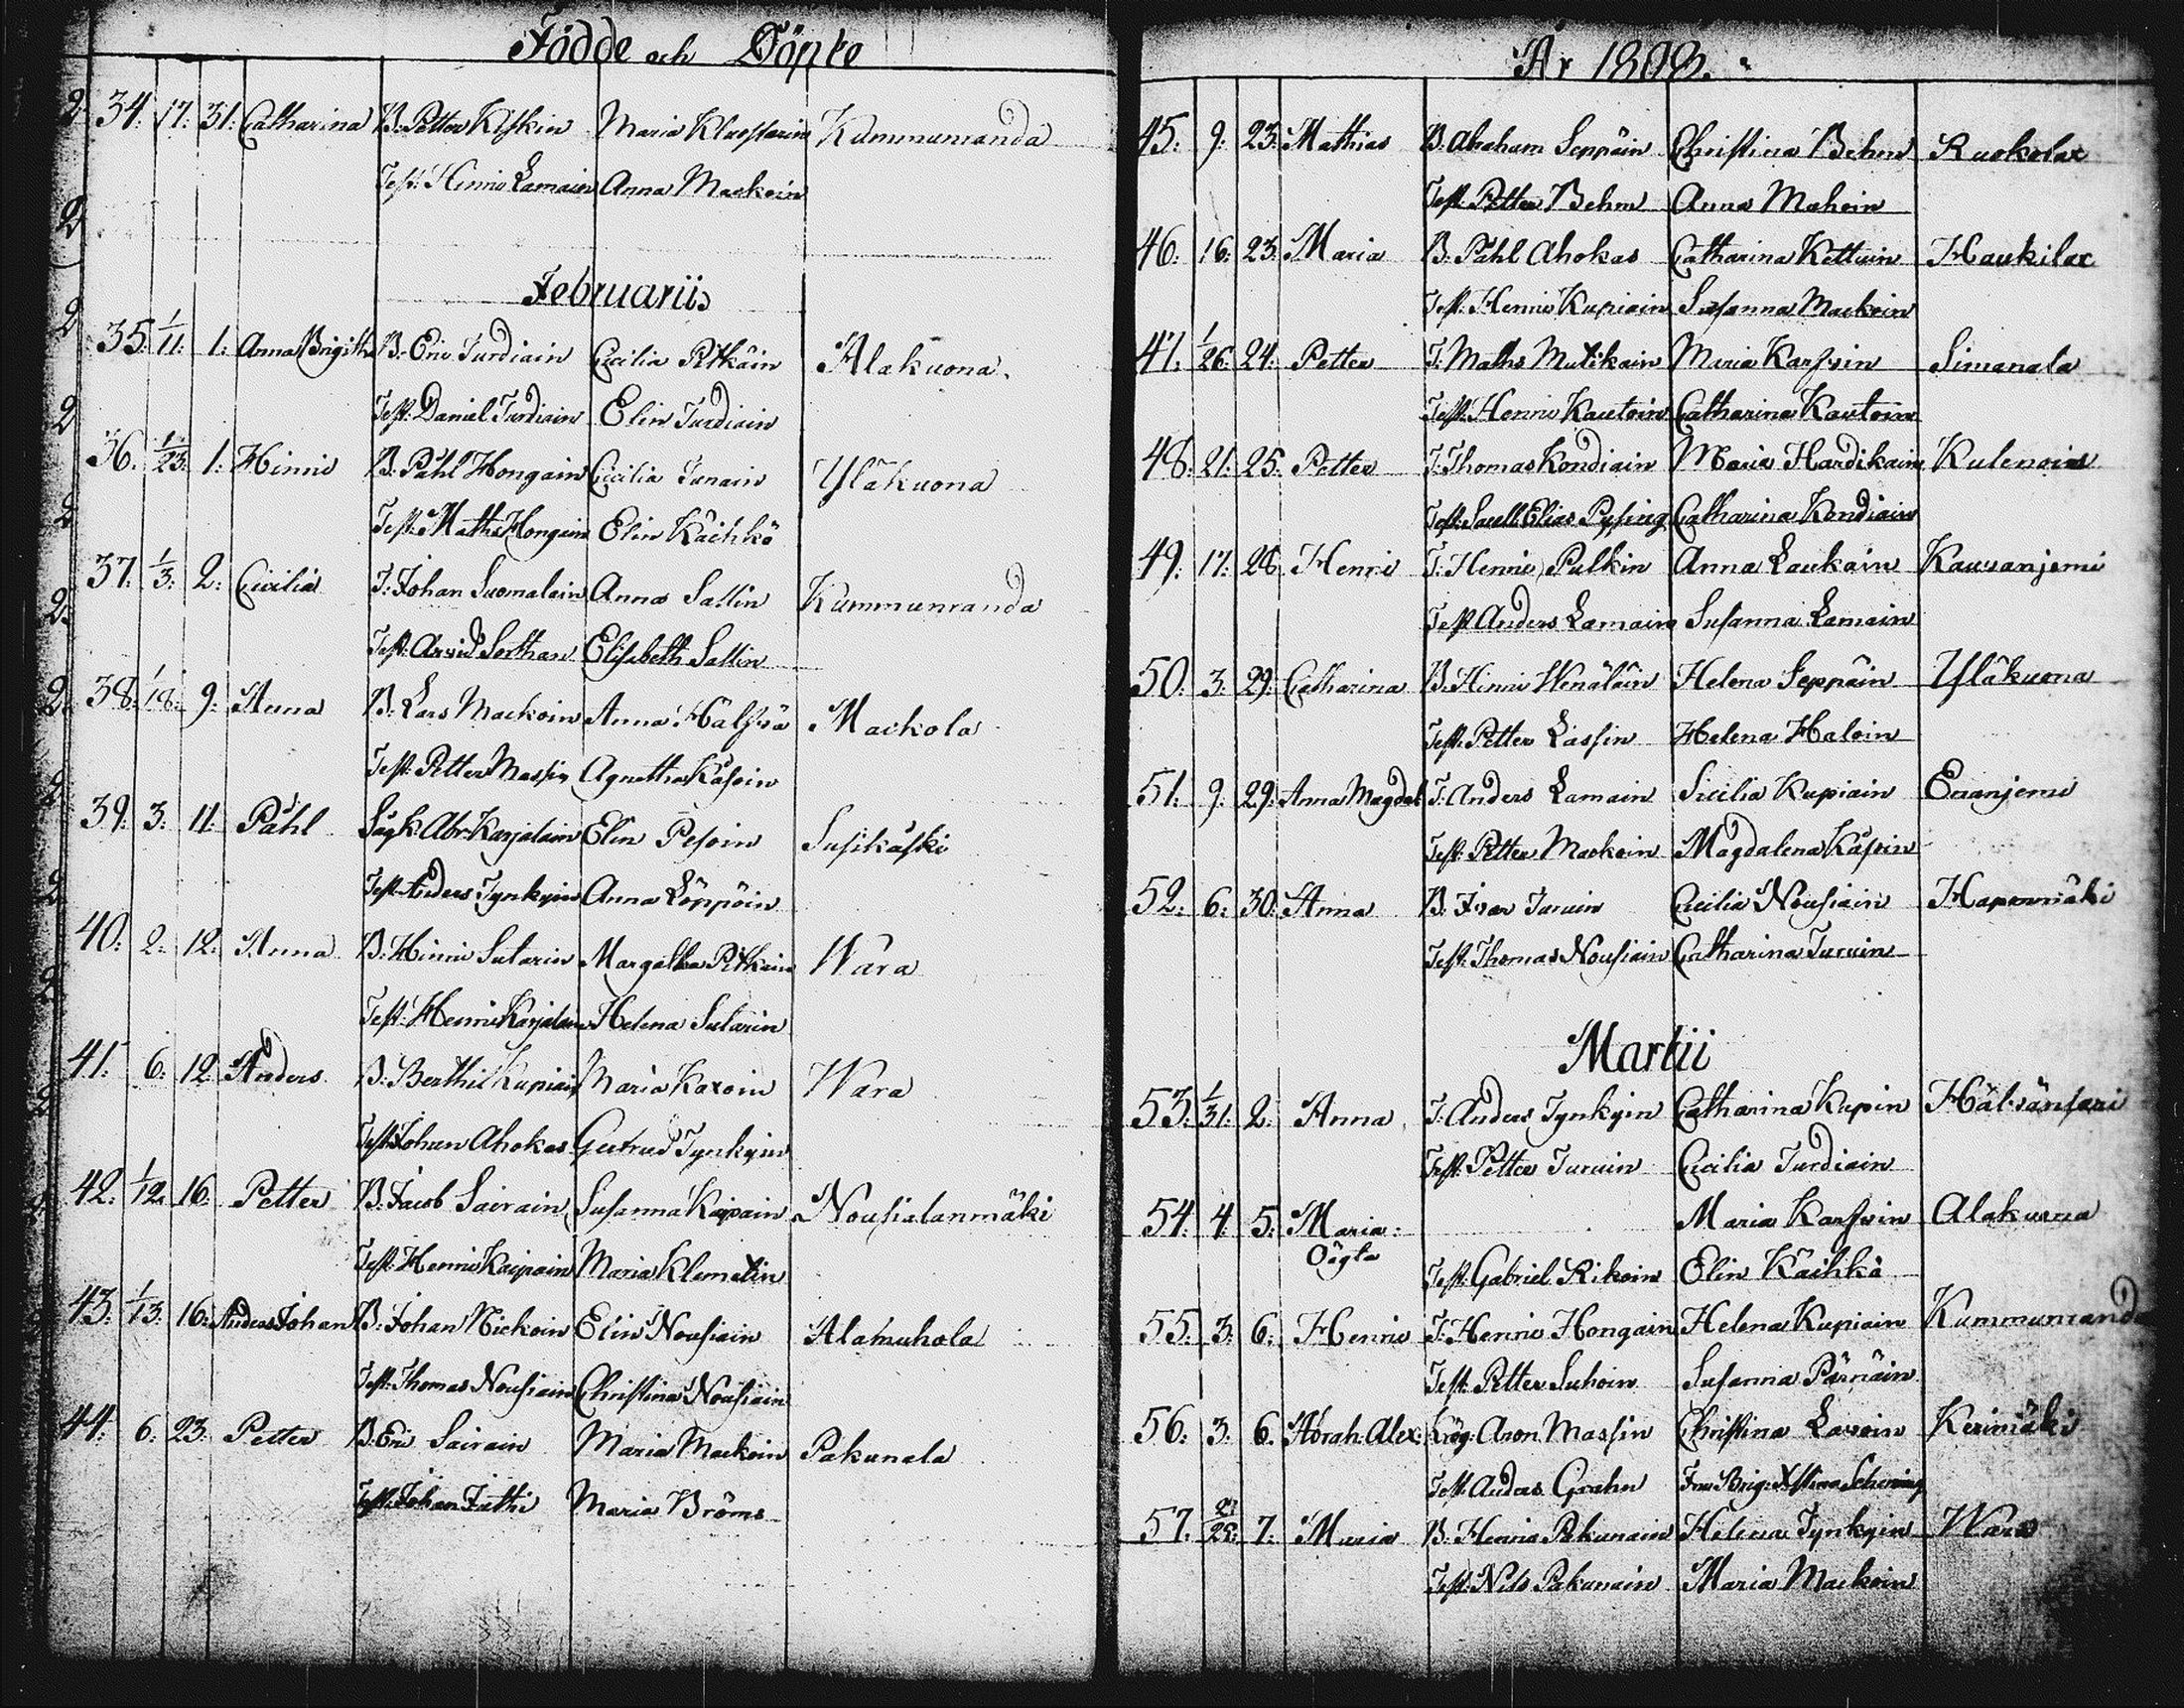 Födde och Döpte
34. 17. 31. Catharina B. Petter Kiskin Maria Kluostarin Kummunranda
Test: Henric Lamain Anna Mackoin
Februarii
35. 1/11. 1. Anna Brigitha B. Eric Turdiain Cicilia Pitkäin Alakuona.
Test: Daniel Turdiain Elin Turdiain
36. 1/23. 1. Hinric B. Påhl Hongain Cicilia Tunain Yläkuona
Test: Math: Hongain Elin Käihkö
37. 1/3. 2. Cicilia T: Johan Suomalain Anna Sallin Kummunranda
Test: Arvid Sorthan Elisabeth Sallin
38. 1/8. 9. Anna B: Lars Mackoin Anna Hälfvä Mackola
Test: Petter Massin Agnetha Käsoin
39. 3. 11. Påhl Abr: Karjalain Elin Pesoin Susikäski
Test: Anders Tynkyin Anna Löppöin
40. 2. 12. Anna B: Hinric Sutarin Margetha Pitkäin Wara
Test: Henric Karjalain Helena Sutarin
41. 6. 12. Anders B: Berthil Kupiain Maria Kaxoin Wara
Test: Johan Ahokas Gertrud Tynkyin
42. 1/12. 16. Petter B: Jacob Sairain Susanna Kaipain Nousialanmäki
Test: Henric Kaipain Maria Klemetin
43. 1/13. 16. Anders Johan B: Johan Mickoin Elin Nousiain Alamuhola
Test: Thomas Nousiain Christina Nousiain
44. 6. 23. Petter B: Eric Sairain Maria Mackoin Pakunala
Test: Johan Fäthi Maria Bröms
År 1808.
45. 9. 23. Mathias B. Abraham Seppäin Christina Behm Ruokolax
Test: Petter Behm Anna Mahoin
46. 16. 23. Maria B. Påhl Ahokas Catharina Kettuin Haukilax
Test: Henric Kupiain Susanna Mackoin
47. 1/26. 24. Petter T: Maths Mutikain Maria Karfvin Simanala
Test: Henric Kautoin Catharina Kautoin
48. 21. 25. Petter T: Thomas Kondiain Maria Hardikain Kulenoin
Test: Elias Pysing Catharina Kondiain
49. 17. 28. Henric T: Henric Pulkin Anna Laukain Kauvanjemi
Test: Anders Lamain Susanna Lamain
50. 3. 29. Catharina B. Hinric Wenäläin Helena Seppäin Yläkuona
Test: Petter Lassin Helena Haloin
51. 9. 29. Anna Magdal: T: Anders Lamain Sicilia Kupiain Enanjemi
Test: Petter Mackoin Magdalena Käsoin
52. 6. 30. Anna B. Ivar Turuin Cicilia Nousiain Hapanmäki
Test: Thomas Nousiain Catharina Turuin
Martii
53. 1/31. 2. Anna T: Anders Tynkyin Catharina Kupin Hälvänsari
Test: Petter Turuin Cicilia Turdiain
54. 4. 5. Maria: Maria Karfvin Alakuona
Oägta Test: Gabriel Rikoin Elin Käihkö
55. 3. 6. Henric T: Henric Hongain Helena Kupiain Kummunranda
Test: Petter Suhoin Susanna Pärnäin
56. 3. 6. Abrah: Alex: Aron Massin Christina Lavoin Kerimäki
Test: Anders Grahn Fru Brig:
57. 21/28. 7. Maria B. Henric Pakunain Helena Tynkyin Wara
Test: Nils Pakunain Maria Mackoin